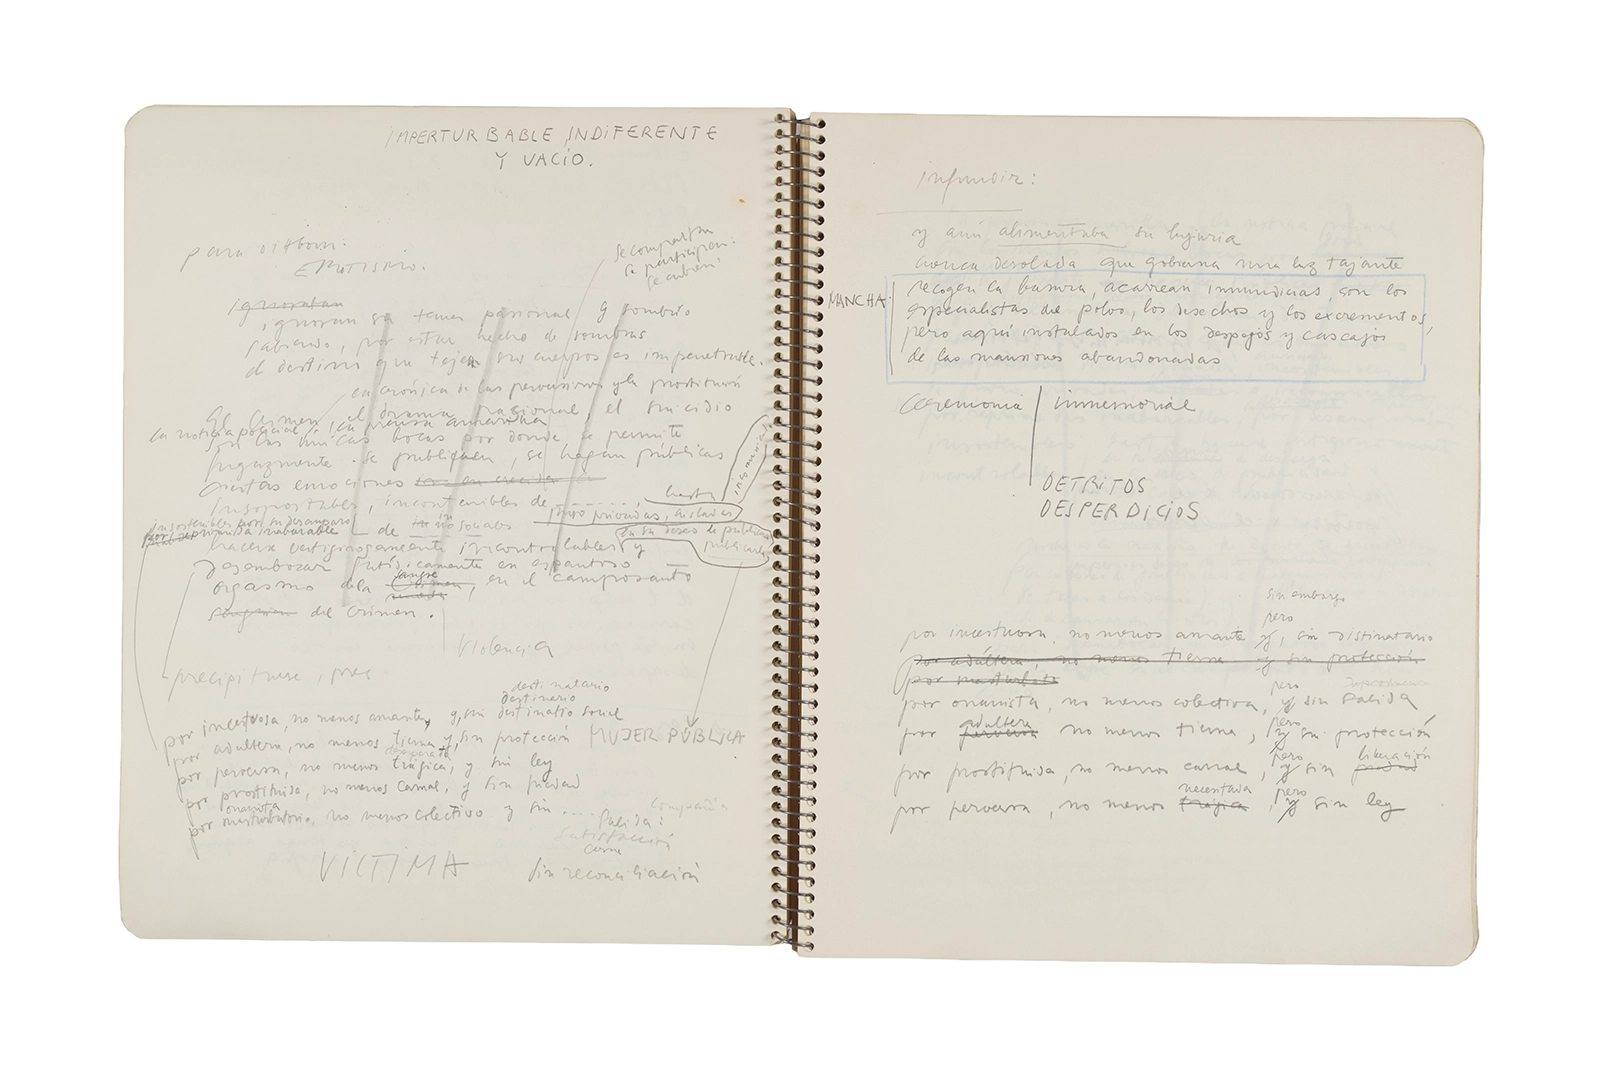 IMPERTURBABLE, INDIFERENTE
Y VACIO.
para dittborn.
EROTISMO.
se compartan
se participan.
ignoraban
, ignoran su tenor pasional y sombrío
sabiendo, por estar hecho de sombras
el destino que tejen sus cuerpos es impenetrable.
en crónica de las perversiones y la prostitución
El Crimen, el drama pasional, el suicidio
la noticia policial, en prensa amarilla
son las únicas bocas por donde se permite
fugazmente se publiquen, se hagan públicas
ciertas emociones
insoportables, incontenibles de
hasta
pero privadas, aisladas
insostenibles por su desamparo
de in no sociales
en su deseo de pública
publicarse
vertiginosamente incontrolables y
desembozar públicamente en espantoso
orgasmo de la sangre, en el camposanto
del crimen.
Violencia
precipitarse, pres
destinatario
destinario
por incestuosa, no menos amante, y, sin destinatio social
por adúltera, no menos tierna y, sin protección MUJER PÚBLICA
por perversa, no menos trágica, y sin ley
por prostituida, no menos carnal, y sin piedad
onanista
por masturbatorio, no menos colectivo y sin .... salida:
compañía
satisfacción
carne
VICTIMA
sin reconciliación
infundir:
y aún alimentaba su lujuria
cuenca desolada que gobierna una luz tajante
MANCHA
recogen la basura, acarrean inmundicias, son los
especialistas del polvo, los desechos y los excrementos,
pero aquí instalados en los despojos y cascajos
de las mansiones abandonadas
ceremonia / inmemorial
DETRITOS
DESPERDICIOS
sin embargo
pero
por incestuosa, no menos amante y, sin distinatario
por adúltera, no menos tierna y sin protección
por masturbato
pero
por onanista, no menos colectiva, y sin salida
adúltera
pero
por perversa no menos tierna, y sin protección
pero liberación
por prostituida, no menos carnal, y sin piedad
necesitada
pero
por perversa, no menos trágica, y sin ley